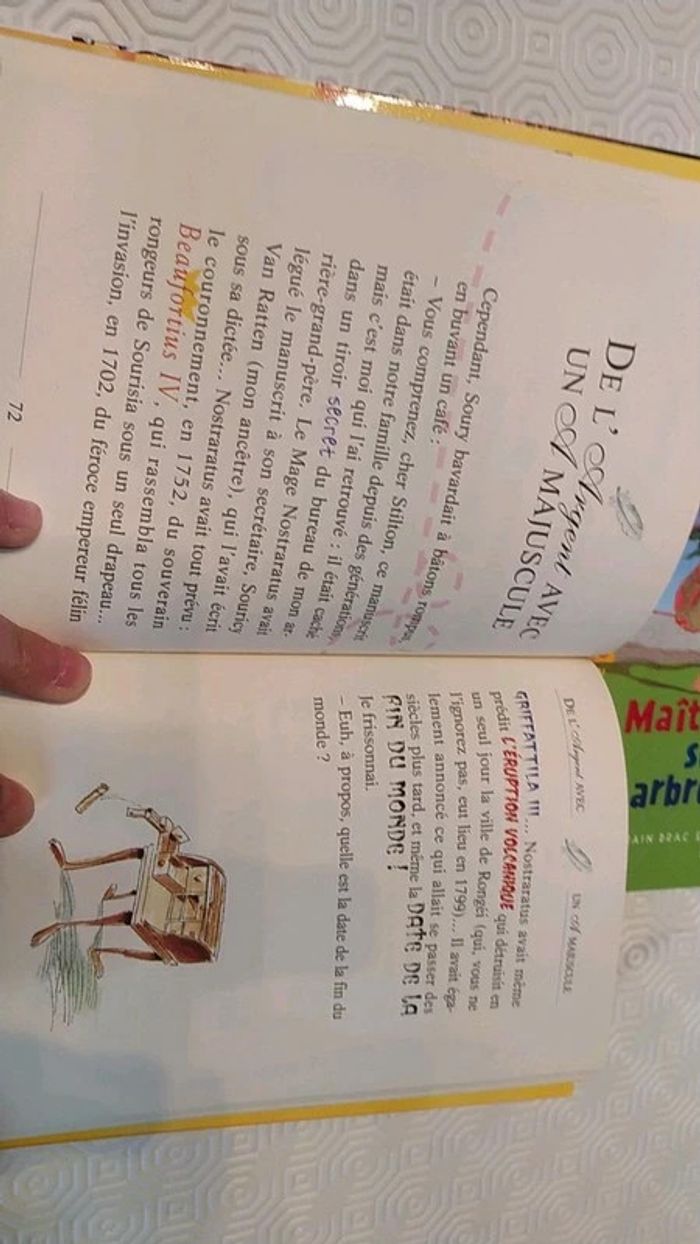 DE L'Argent AVEC
UN A MAJUSCULE
Cependant, Soury bavardait à bâtons rompus,
en buvant un café :
– Vous comprenez, cher Stilton, ce manuscrit
était dans notre famille depuis des générations,
mais c'est moi qui l'ai retrouvé : il était caché
dans un tiroir secret du bureau de mon ar-
rière-grand-père. Le Mage Nostraratus avait
légué le manuscrit à son secrétaire, Souricy
Van Ratten (mon ancêtre), qui l'avait écrit
sous sa dictée... Nostraratus avait tout prévu :
le couronnement, en 1752, du souverain
Beaufortius IV, qui rassembla tous les
rongeurs de Sourisia sous un seul drapeau...
l'invasion, en 1702, du féroce empereur félin
72
DE L'Argent AVEC UN A MAJUSCULE
GRIFFATTILA !!!... Nostraratus avait même
prédit L'ÉRUPTION VOLCANIQUE qui détruisit en
un seul jour la ville de Rongéi (qui, vous ne
l'ignorez pas, eut lieu en 1799)... Il avait éga-
lement annoncé ce qui allait se passer des
siècles plus tard, et même la DATE DE LA
FIN DU MONDE !
Je frissonnai.
– Euh, à propos, quelle est la date de la fin du
monde ?
Maît
s
arbr
AIN BRAC